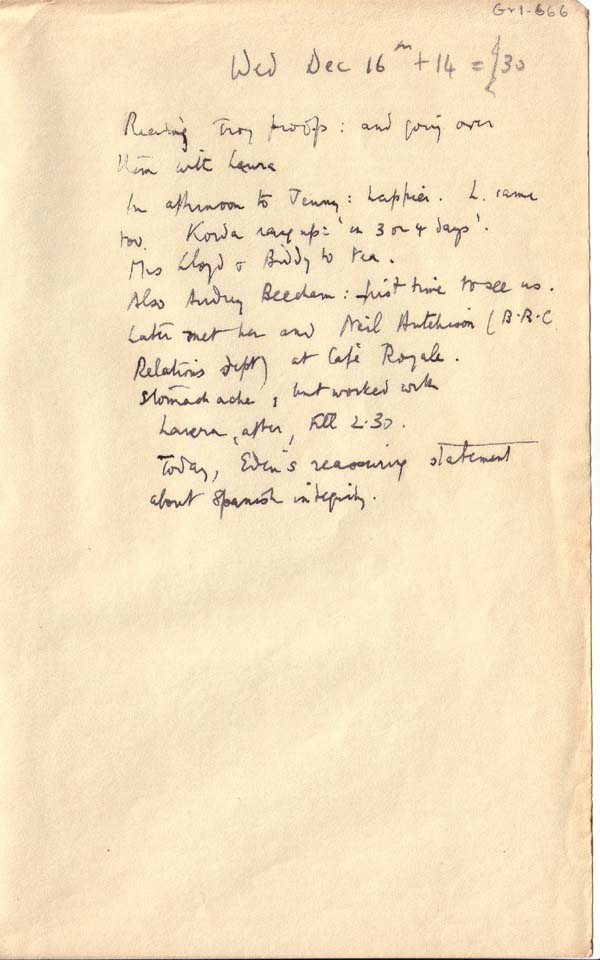 Gr1-666
Wed Dec 16th + 14 = 30
Reading Troy proofs: and going over
them with Laura
In afternoon to Jenny: happier. L. came
too. Korda rang up: 'in 3 or 4 days'.
Mrs Lloyd & Biddy to tea.
Also Audrey Beecham: first time to see us.
Later met her and Neil Hutchison (B.B.C
Relations dept) at Café Royale.
Stomach ache, but worked with
Laura, after, till 2.30.
Today, Eden's reassuring statement
about Spanish integrity.